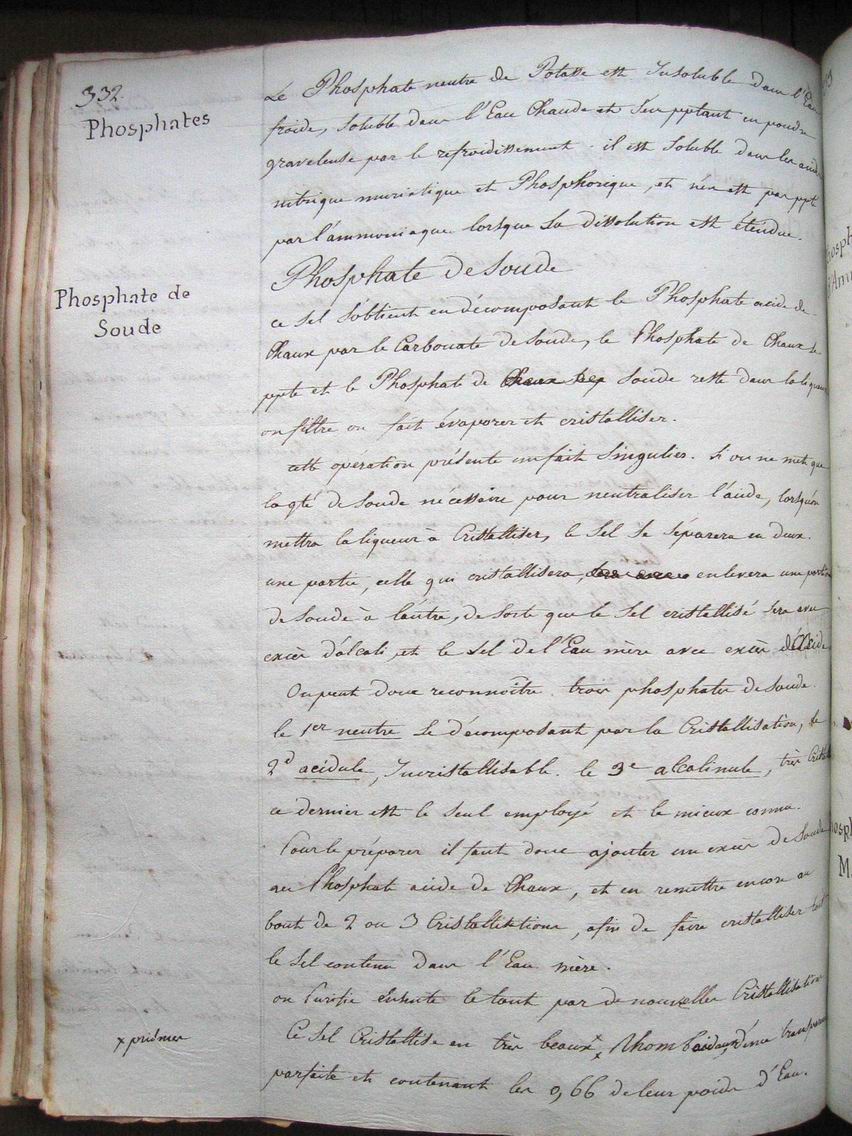 332
Phosphates
Le Phosphate neutre de Potasse est Insoluble dans l'Eau
froide, soluble dans l'Eau Chaude et s'en pptant en poudre
graveleuse par le refroidissement. il est soluble dans les acides
nitrique muriatique et Phosphorique, et n'en est pas ppt
par l'ammoniaque lorsque sa dissolution est étendue.
Phosphate de Soude
Phosphate de
Soude
ce Sel s'obtient en décomposant le Phosphate acide de
Chaux par le Carbonate de Soude, le Phosphate de Chaux se
ppte et le Phosphate de Soude reste dans la liqueur
on filtre on fait évaporer et cristalliser.
cette opération présente un fait singulier. Si on ne met que
la qté de Soude nécessaire pour neutraliser l'acide, lorsqu'on
mettra la liqueur à Cristalliser, le Sel se séparera en deux.
une partie, celle qui cristallisera, enlevera une partie
de Soude à l'autre, de sorte que le Sel cristallisé sera avec
excès d'alcali, et le Sel de l'Eau mère avec excès d'Acide
On peut donc reconnoître trois phosphates de Soude.
le 1er neutre se décomposant par la Cristallisation, le
2d acidule, Incristallisable. le 3e alcalinule, très
ce dernier est le seul employé et le mieux connu.
Pour le préparer il faut donc ajouter un excès de Soude
au Phosphat acide de Chaux, et en remettre encore au
bout de 2 ou 3 Cristallitions, afin de faire cristalliser tout
le Sel contenu dans l'Eau mère.
on Purifie ensuite le tout par de nouvelles Cristallisations
Ce Sel Cristallise en très beaux x Rhomboidaux, d'une transparence
x prismes
parfaite et contenant les 0,66 de leur poids d'Eau.